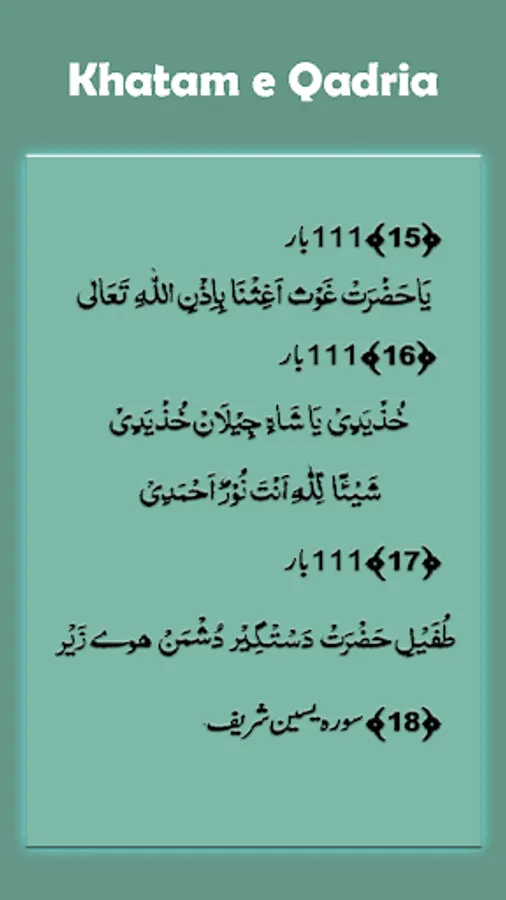 Khatam e Qadria
﴿15﴾ 111 بار
یَاحَضْرَتْ غَوْث اَغِثْنَا بِاِذْنِ اللّٰهِ تَعَالٰی
﴿16﴾ 111 بار
خُذْیَدِیْ یَا شَاہِ جِیْلَانْ خُذْیَدِیْ
شَیْئًا لِّلّٰهِ اَنْتَ نُوْرٌ اَحْمَدِیْ
﴿17﴾ 111 بار
طُفَیْلِ حَضْرَتْ دَسْتْگِیْر دُشْمَنْ هوے زَیْر
﴿18﴾ سورہ یسین شریف